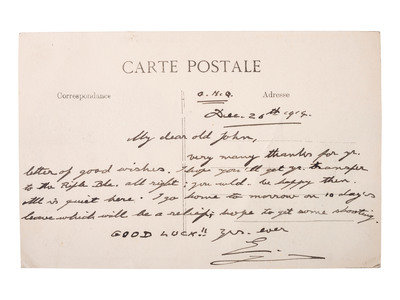 CARTE POSTALE
Correspondance
Adresse
G.H.Q.
Dec. 26th 1919.
My dear old John,
very many thanks for yr.
letter of good wishes. I hope you'll get yr. transfer
to the Rifle Bde. all right; you wld. be happy then
All is quiet here: I go home to morrow on 10 days
leave which will be a relief; hope to get some shooting.
GOOD LUCK!! Yrs. ever
E